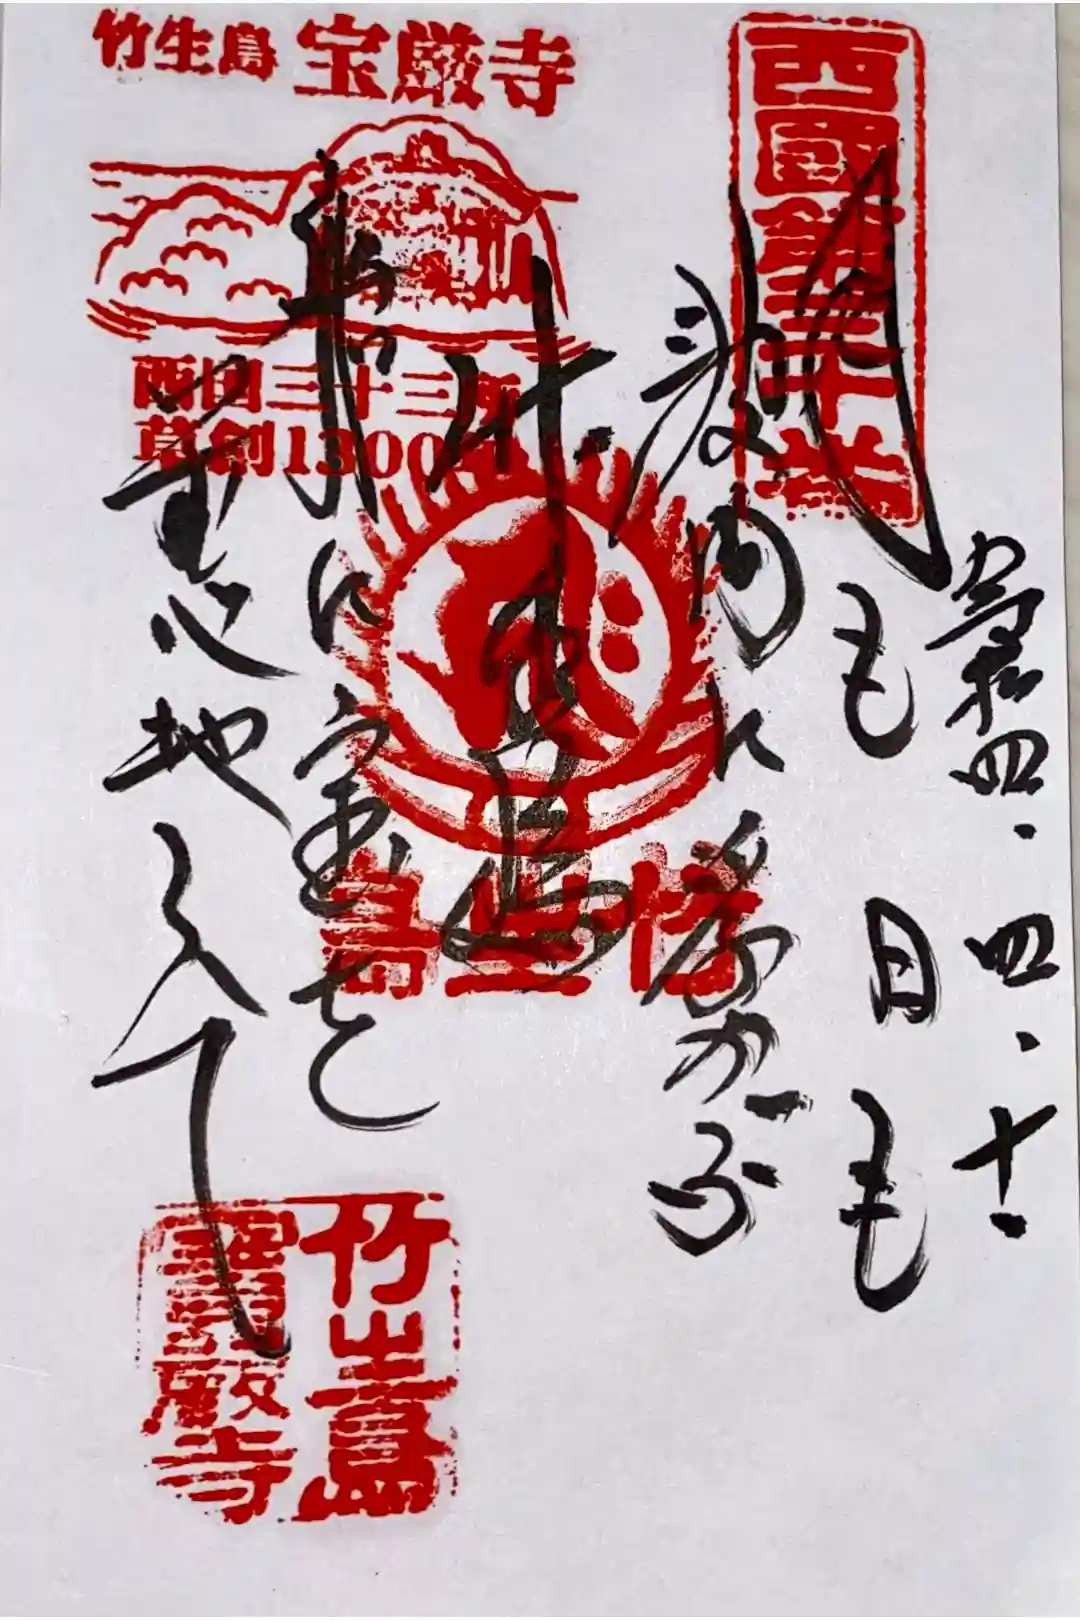 竹生島 宝厳寺
西国三十三所
草創1300年
西國第三十番
令和四.四.十.
月も日も
波間に浮かぶ
竹生島
船に宝を
心地して
竹生島
竹生島
寶厳寺